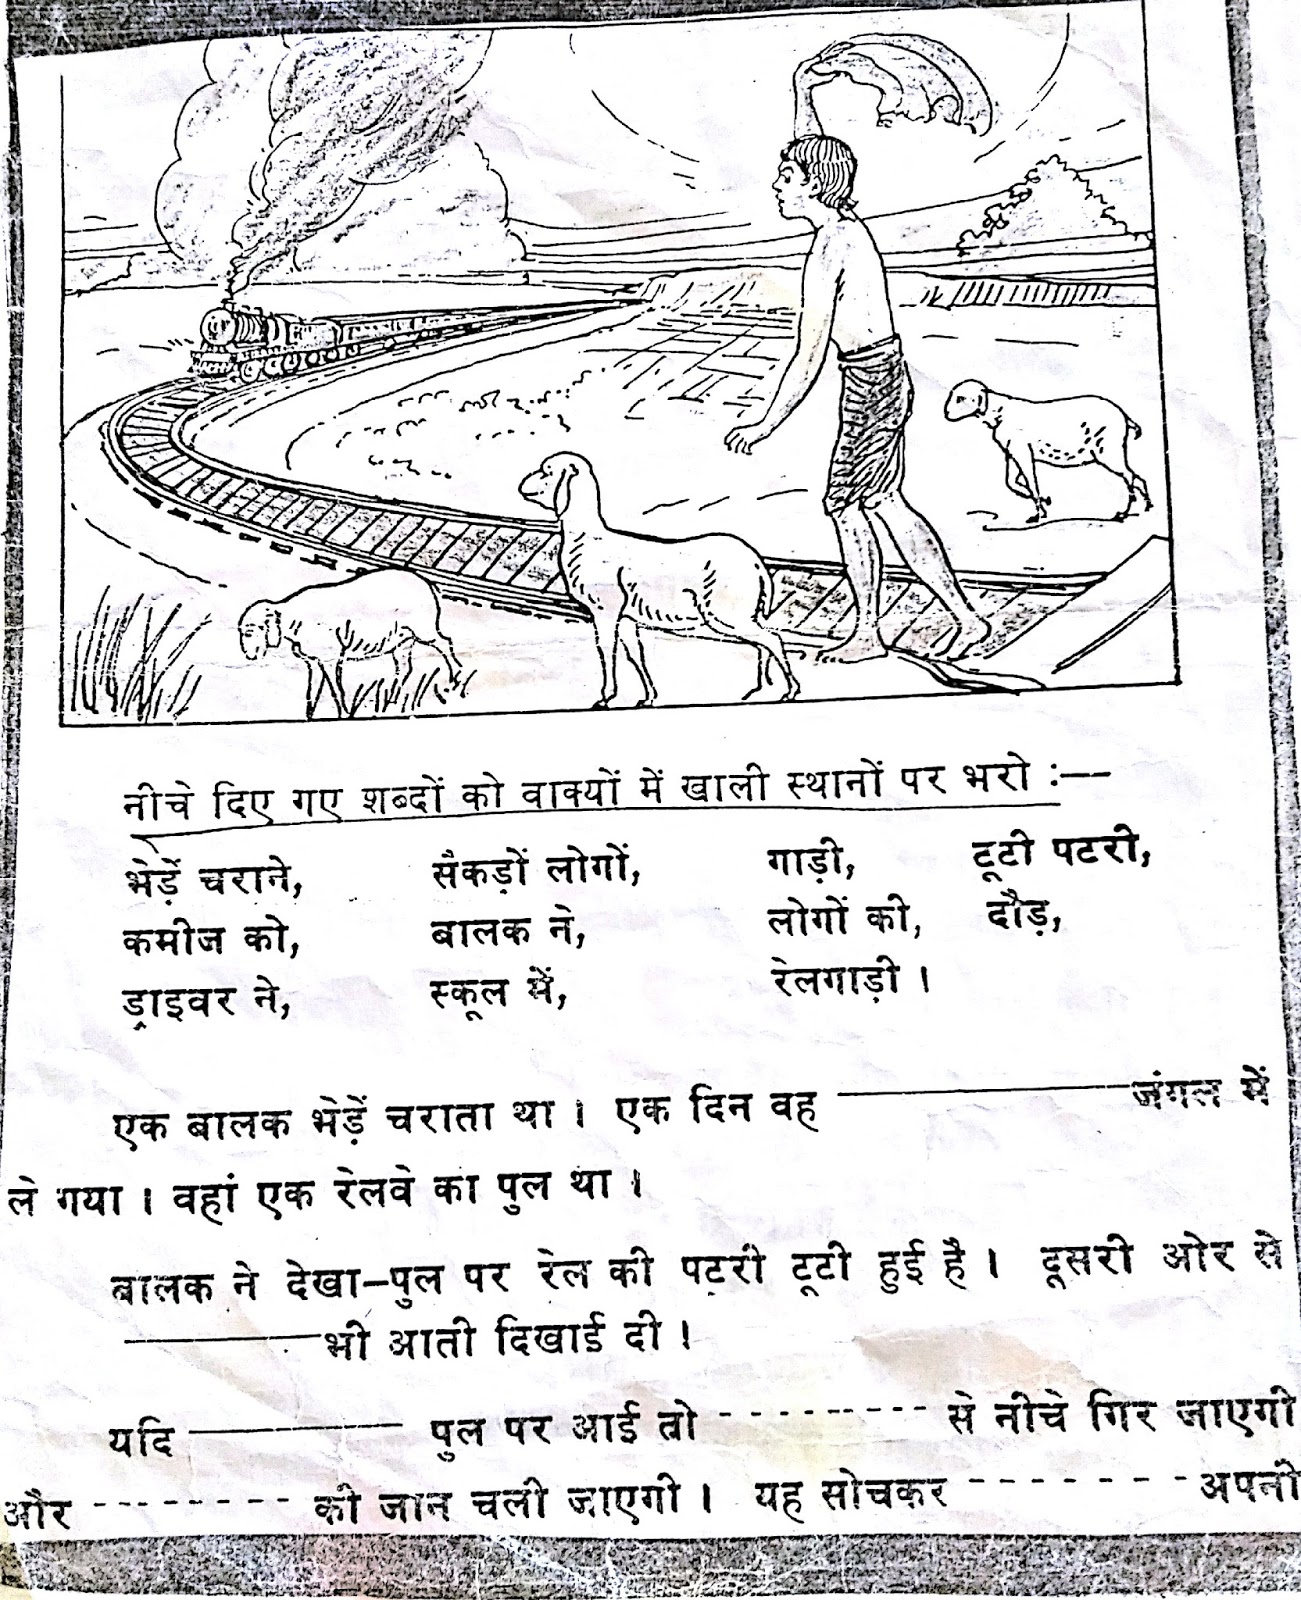 नीचे दिए गए शब्दों को वाक्यों में खाली स्थानों पर भरो :—
भेड़ें चराने, सैकड़ों लोगों, गाड़ी, टूटी पटरी,
कमीज को, बालक ने, लोगों की, दौड़,
ड्राइवर ने, स्कूल में, रेलगाड़ी ।
एक बालक भेड़ें चराता था । एक दिन वह ———— जंगल में
ले गया । वहां एक रेलवे का पुल था ।
बालक ने देखा–पुल पर रेल की पटरी टूटी हुई है । दूसरी ओर से
———— भी आती दिखाई दी ।
यदि ———— पुल पर आई तो - - - - - - - - - से नीचे गिर जाएगी
और - - - - - - - - की जान चली जाएगी । यह सोचकर - - - - - - - - अपनी